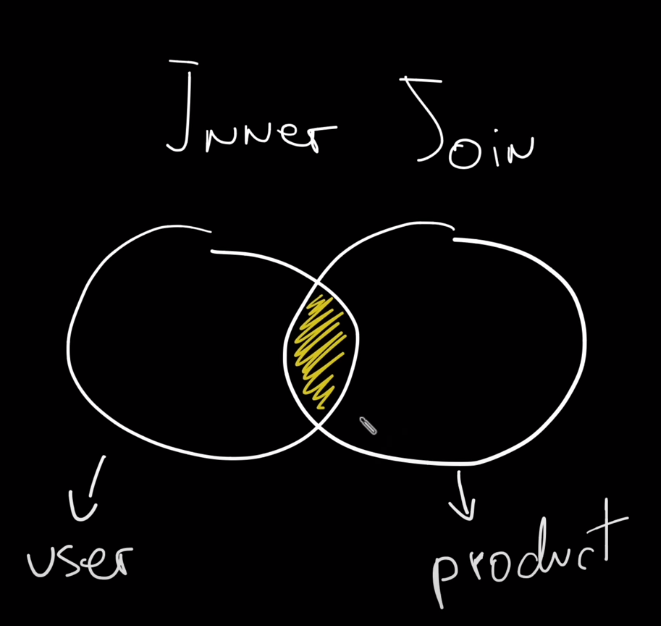 Inner Join
user
product